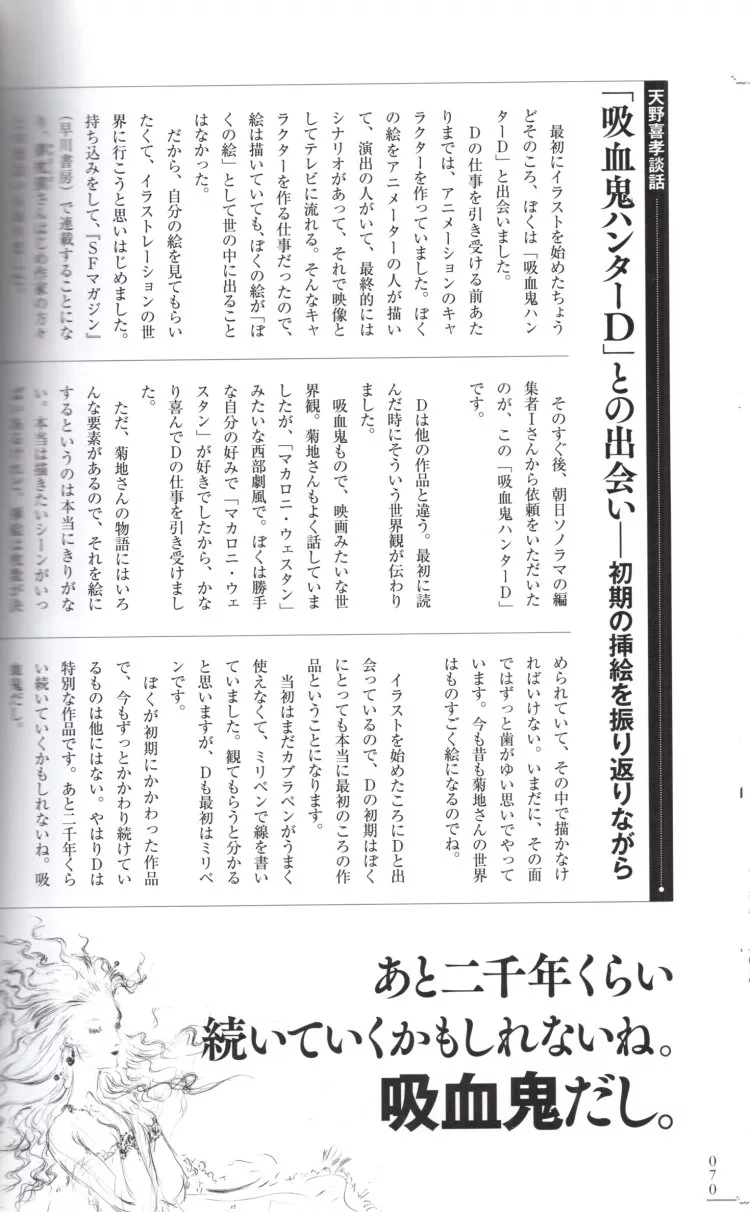 天野喜孝談話
「吸血鬼ハンターD」との出会い―初期の挿絵を振り返りながら
最初にイラストを始めたちょう
どそのころ、ぼくは「吸血鬼ハン
ターD」と出会いました。
Dの仕事を引き受ける前あた
りまでは、アニメーションのキャ
ラクターを作っていました。ぼく
の絵をアニメーターの人が描い
て、演出の人がいて、最終的には
シナリオがあって、それで映像と
してテレビに流れる。そんなキャ
ラクターを作る仕事だったので、
絵は描いていても、ぼくの絵が「ぼ
くの絵」として世の中に出ること
はなかった。
だから、自分の絵を見てもらい
たくて、イラストレーションの世
界に行こうと思いはじめました。
持ち込みをして、『SFマガジン』
（早川書房）で連載することにな
さんはじめ作家の方々
そのすぐ後、朝日ソノラマの編
集者Iさんから依頼をいただいた
のが、この「吸血鬼ハンターD」
です。
Dは他の作品と違う。最初に読
んだ時にそういう世界観が伝わり
ました。
吸血鬼もので、映画みたいな世
界観。菊地さんもよく話していま
したが、「マカロニ・ウェスタン」
みたいな西部劇風で。ぼくは勝手
な自分の好みで「マカロニ・ウェ
スタン」が好きでしたから、かな
り喜んでDの仕事を引き受けまし
た。
ただ、菊地さんの物語にはいろ
んな要素があるので、それを絵に
するというのは本当にきりがな
い。本当は描きたいシーンがいっ
ぱいあるけれど、挿絵は枚数が決
められていて、その中で描かなけ
ればいけない。いまだに、その面
ではずっと歯がゆい思いでやって
います。今も昔も菊地さんの世界
はものすごく絵になるのでね。
イラストを始めたころにDと出
会っているので、Dの初期はぼく
にとっても本当に最初のころの作
品ということになります。
当初はまだカブラペンがうまく
使えなくて、ミリペンで線を書い
ていました。観てもらうと分かる
と思いますが、Dも最初はミリペ
ンです。
ぼくが初期にかかわった作品
で、今もずっとかかわり続けてい
るものは他にはない。やはりDは
特別な作品です。あと二千年くら
い続いていくかもしれないね。吸
血鬼だし。
あと二千年くらい
続いていくかもしれないね。
吸血鬼だし。
070